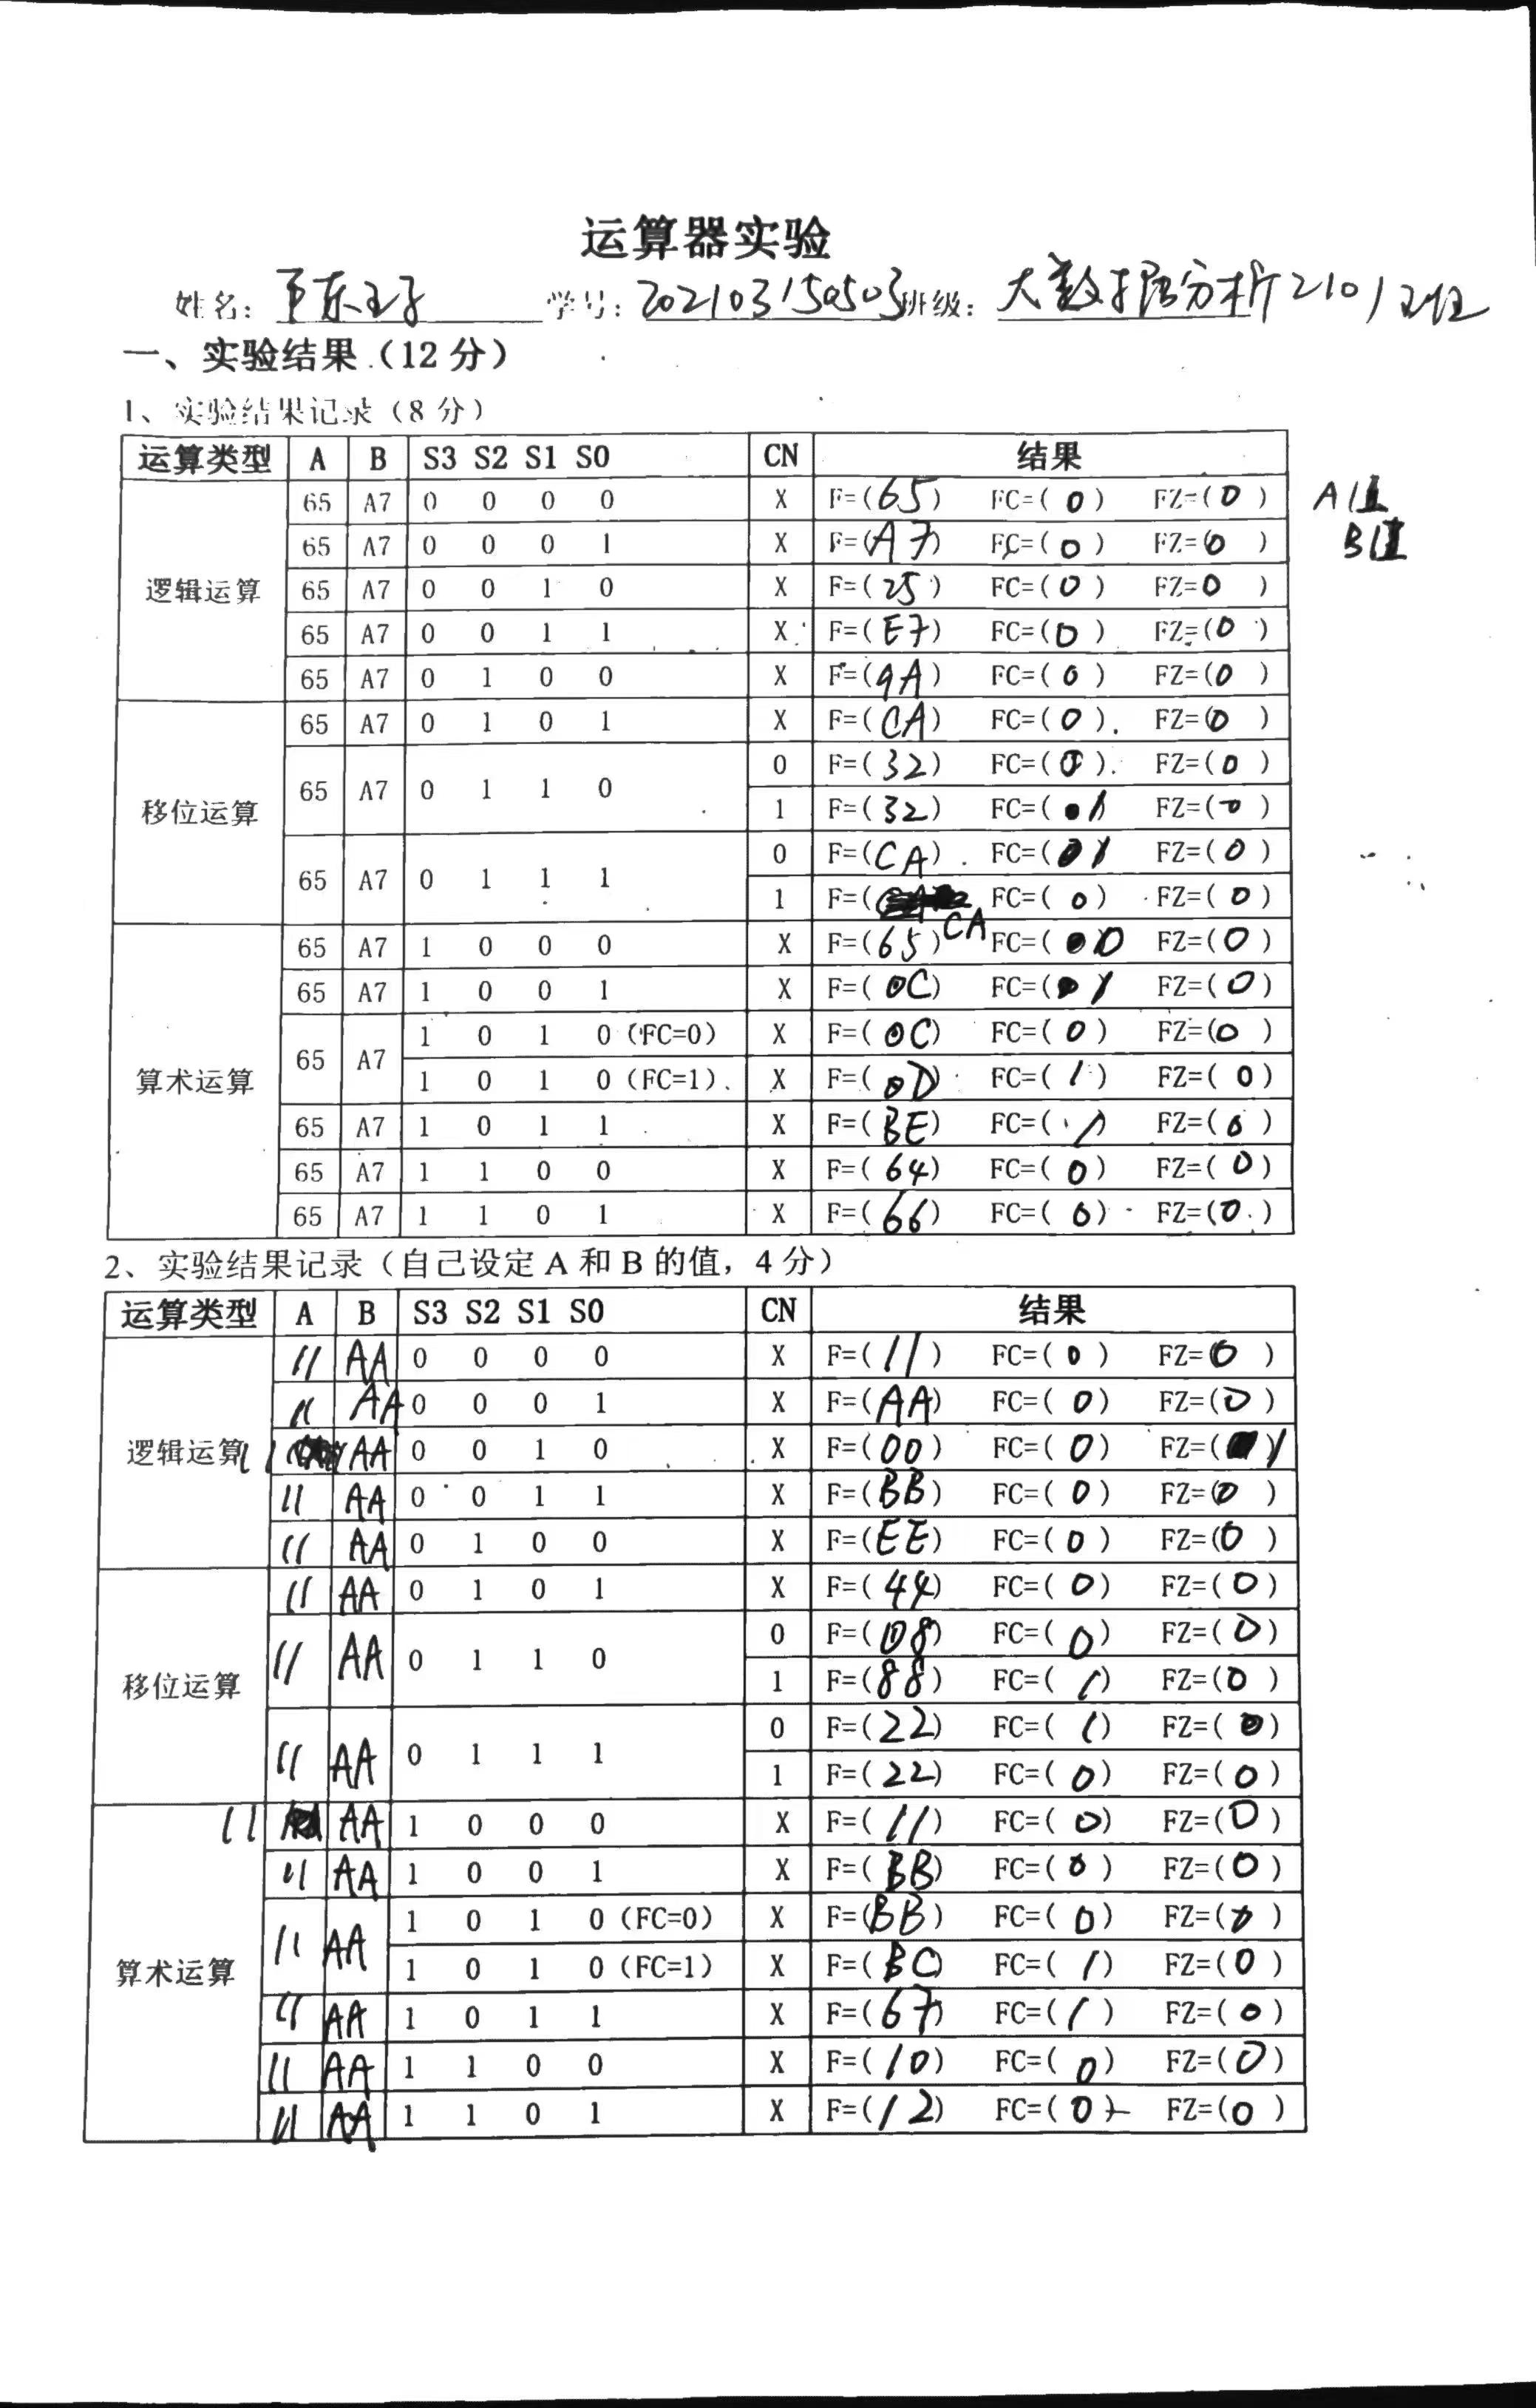 运算器实验
姓名: 学号: 202103150503 班级: 大数据分析2101班
一、实验结果(12分)
1、实验结果记录(8分)
运算类型 A B S3 S2 S1 S0 CN 结果
65 A7 0 0 0 0 X F=(65) FC=(0) FZ=(0) A值
65 A7 0 0 0 1 X F=(A7) FC=(0) FZ=(0) B值
逻辑运算 65 A7 0 0 1 0 X F=(25) FC=(0) FZ=(0)
65 A7 0 0 1 1 X F=(E7) FC=(0) FZ=(0)
65 A7 0 1 0 0 X F=(9A) FC=(0) FZ=(0)
65 A7 0 1 0 1 X F=(CA) FC=(0) FZ=(0)
0 F=(32) FC=( ) FZ=(0)
移位运算 65 A7 0 1 1 0
1 F=(32) FC=(1) FZ=(0)
0 F=(CA) FC=(1) FZ=(0)
65 A7 0 1 1 1
1 F=(CA FC=(0) FZ=(0)
65 A7 1 0 0 0 X F=(65) FC=(0) FZ=(0)
65 A7 1 0 0 1 X F=(0C) FC=(1) FZ=(0)
65 A7 1 0 1 0(FC=0) X F=(0C) FC=(0) FZ=(0)
算术运算 1 0 1 0(FC=1) X F=(0D) FC=(1) FZ=(0)
65 A7 1 0 1 1 X F=(BE) FC=(1) FZ=(0)
65 A7 1 1 0 0 X F=(64) FC=(0) FZ=(0)
65 A7 1 1 0 1 X F=(66) FC=(0) FZ=(0)
2、实验结果记录(自己设定A和B的值,4分)
运算类型 A B S3 S2 S1 S0 CN 结果
11 AA 0 0 0 0 X F=(11) FC=(0) FZ=(0)
11 AA 0 0 0 1 X F=(AA) FC=(0) FZ=(0)
逻辑运算 11 AA 0 0 1 0 X F=(00) FC=(0) FZ=(1)
11 AA 0 0 1 1 X F=(BB) FC=(0) FZ=(0)
11 AA 0 1 0 0 X F=(EE) FC=(0) FZ=(0)
11 AA 0 1 0 1 X F=(44) FC=(0) FZ=(0)
0 F=(08) FC=(0) FZ=(0)
移位运算 11 AA 0 1 1 0
1 F=(88) FC=(1) FZ=(0)
0 F=(22) FC=(1) FZ=(0)
11 AA 0 1 1 1
1 F=(22) FC=(0) FZ=(0)
11 AA 1 0 0 0 X F=(11) FC=(0) FZ=(0)
11 AA 1 0 0 1 X F=(BB) FC=(0) FZ=(0)
11 AA 1 0 1 0(FC=0) X F=(BB) FC=(0) FZ=(0)
算术运算 1 0 1 0(FC=1) X F=(BC) FC=(1) FZ=(0)
11 AA 1 0 1 1 X F=(67) FC=(1) FZ=(0)
11 AA 1 1 0 0 X F=(10) FC=(0) FZ=(0)
11 AA 1 1 0 1 X F=(12) FC=(0) FZ=(0)